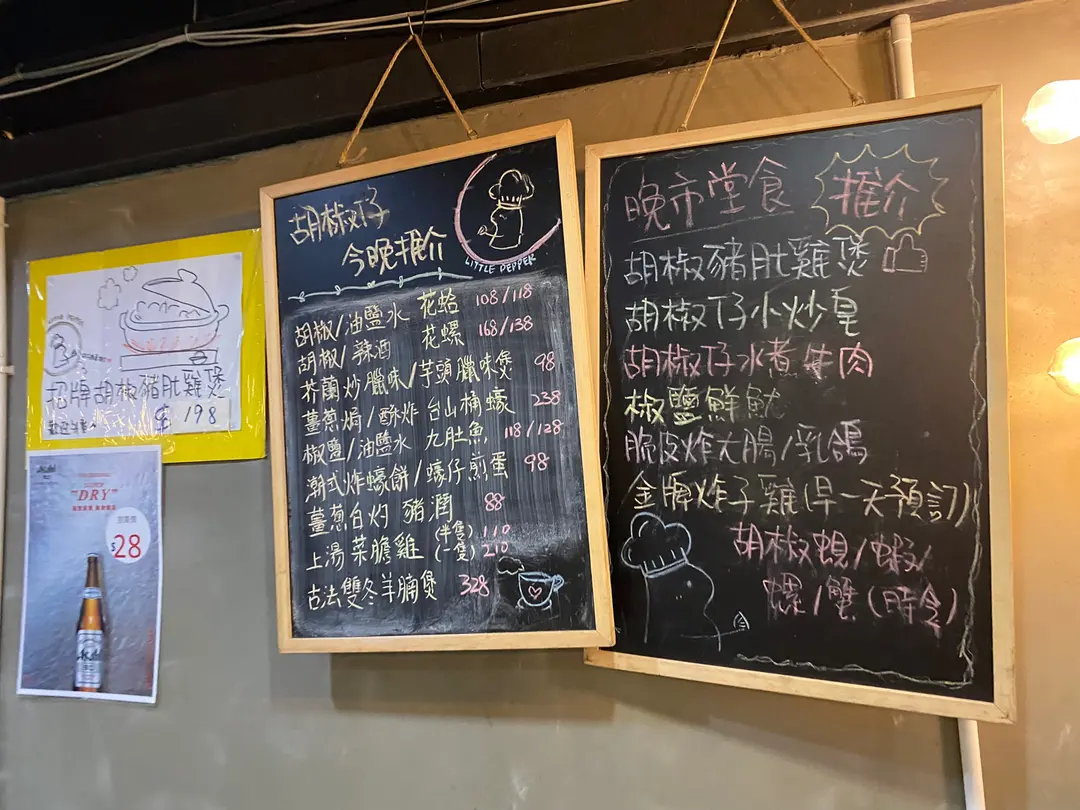 招牌胡椒豬肚雞煲
$198
Asahi
SUPER
"DRY"
$28
Asahi
胡椒仔
今晚推介
LITTLE PEPPER
胡椒/油鹽水 花蛤 108/118
胡椒/辣酒 花螺 168/138
芥蘭炒臘味/芋頭臘味煲 98
薑蔥焗/酥炸台山桶蠔 238
椒鹽/油鹽水 九肚魚 118/128
潮式炸蠔餅/蠔仔煎蛋 98
薑蔥白灼豬潤 88
上湯菜膽雞 (半隻) 110
(一隻) 210
古法雙冬羊腩煲 328
晚市堂食 推介
胡椒豬肚雞煲
胡椒仔小炒皇
胡椒仔水煮牛肉
椒鹽鮮魷
脆皮炸大腸/乳鴿
金牌炸子雞(早一天預訂)
胡椒蜆/蝦/
螺/蟹(時令)